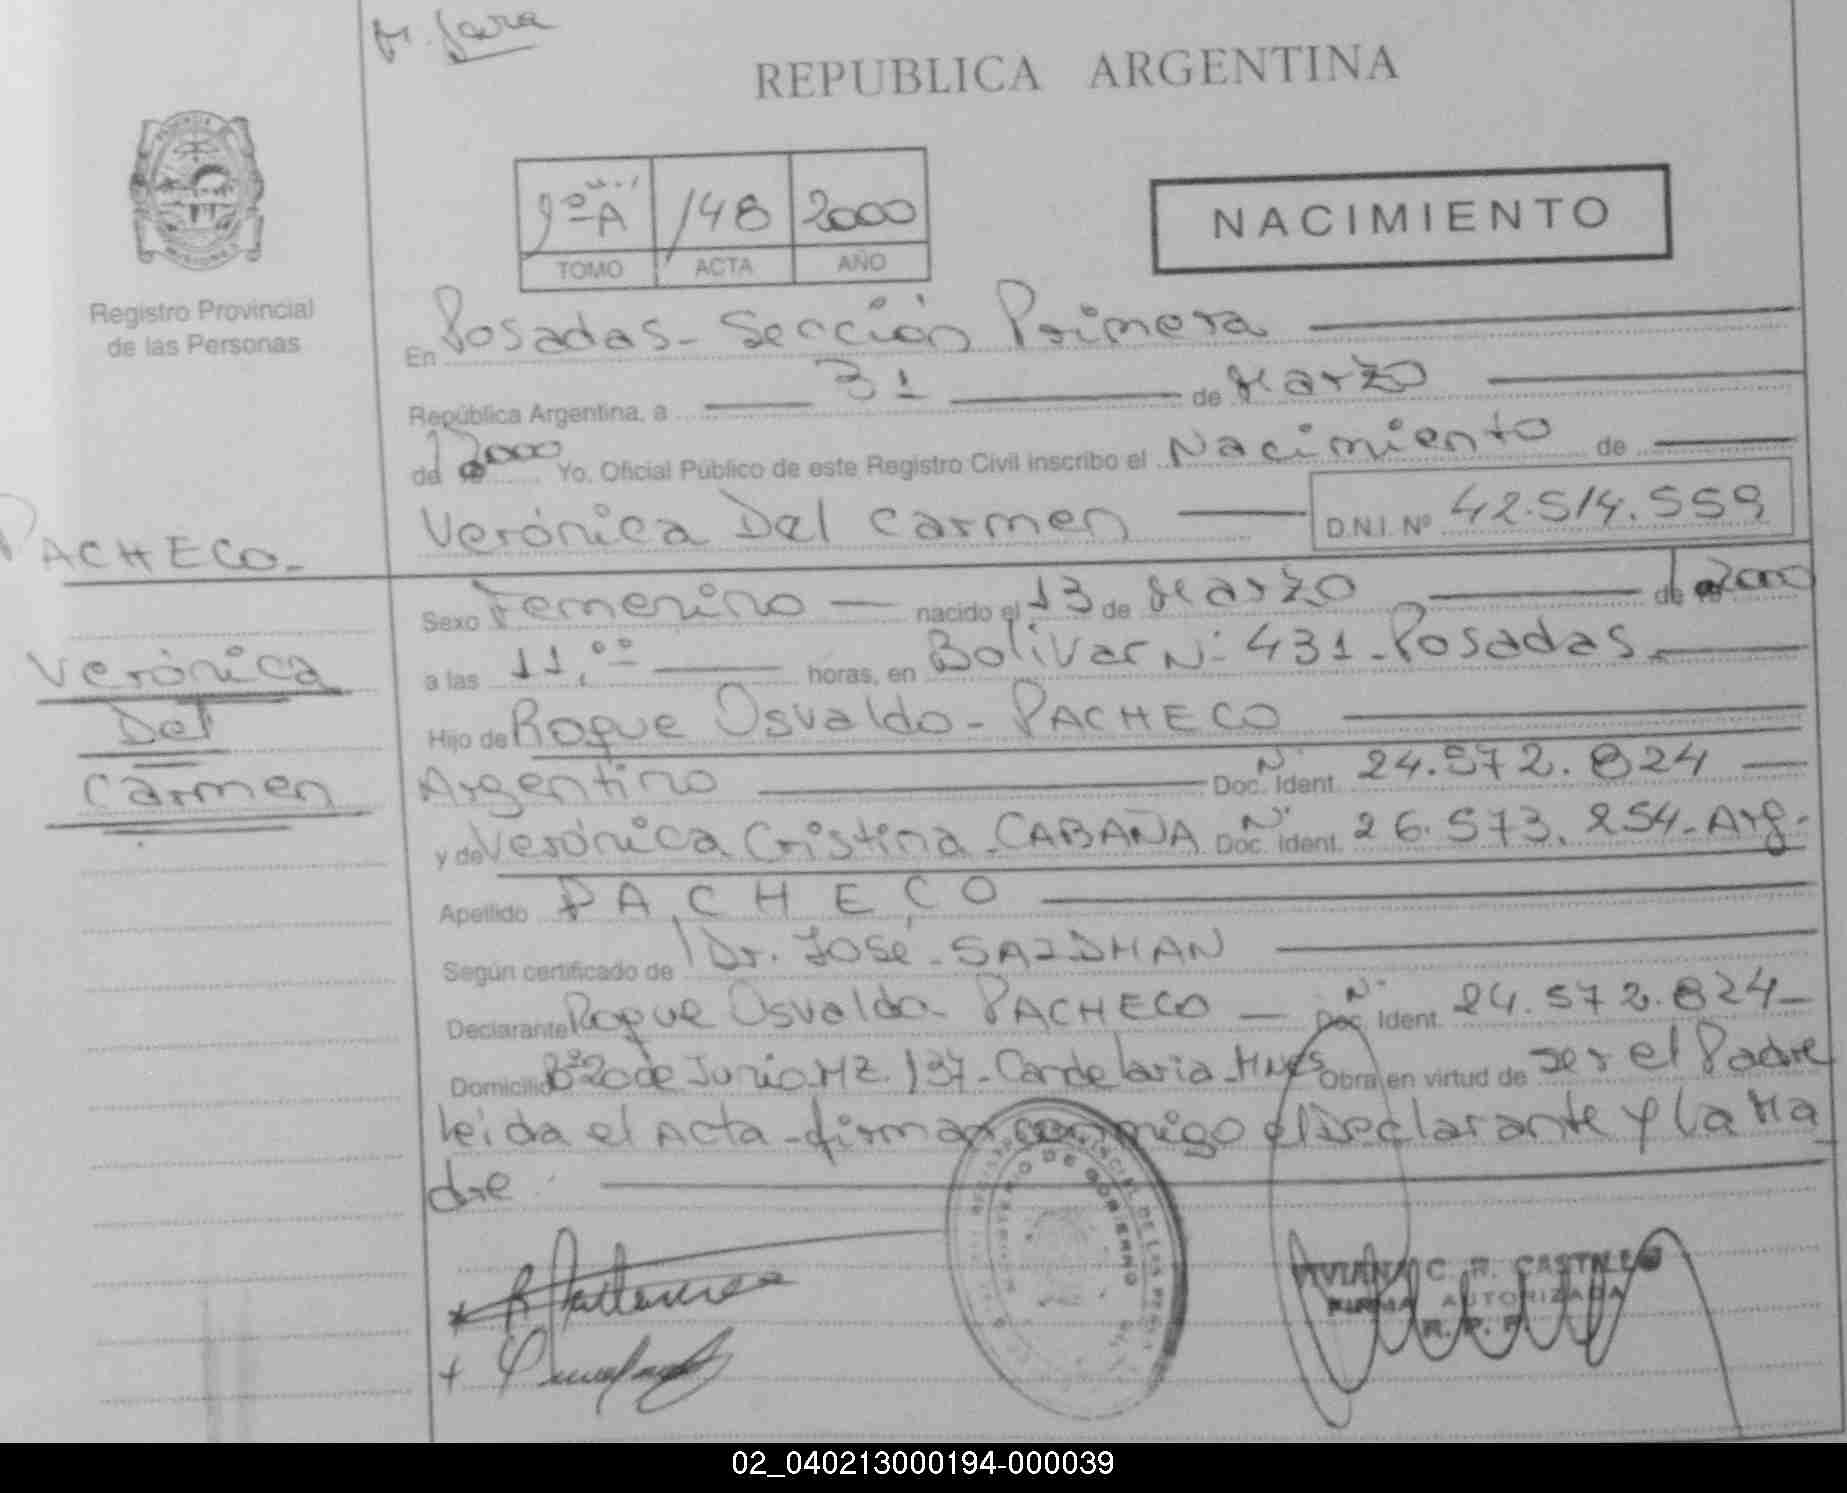 REPUBLICA ARGENTINA
1º A 148 2000
TOMO ACTA AÑO
NACIMIENTO
Registro Provincial
de las Personas
En Posadas - Sección Primera
República Argentina, a 31 de Marzo
de 2000 Yo, Oficial Público de este Registro Civil inscribo el Nacimiento de
Verónica Del Carmen D.N.I. Nº 42.514.559
PACHECO.-
Verónica
Del
Carmen
Sexo Femenino nacido el 13 de Marzo de 2000
a las 11,00 horas, en Bolivar Nº 431 - Posadas.
Hijo de Roque Osvaldo - PACHECO
Argentino Doc. Ident. Nº 24.572.824
y de Verónica Cristina - CABAÑA Doc. Ident. Nº 26.573.254 - Arg.
Apellido PACHECO
Según certificado de Dr. José - SAIDMAN
Declarante Roque Osvaldo - PACHECO Doc. Ident. Nº 24.572.824
Domicilio Bº 20 de Junio MZ. 137 - Candelaria - Mnes Obra en virtud de ser el Padre
leida el Acta - firman conmigo el Declarante y la Ma
dre
VIVIANA C. R. CASTILLO
FIRMA AUTORIZADA
R. P. P.
MINISTERIO DE GOBIERNO
02_040213000194-000039